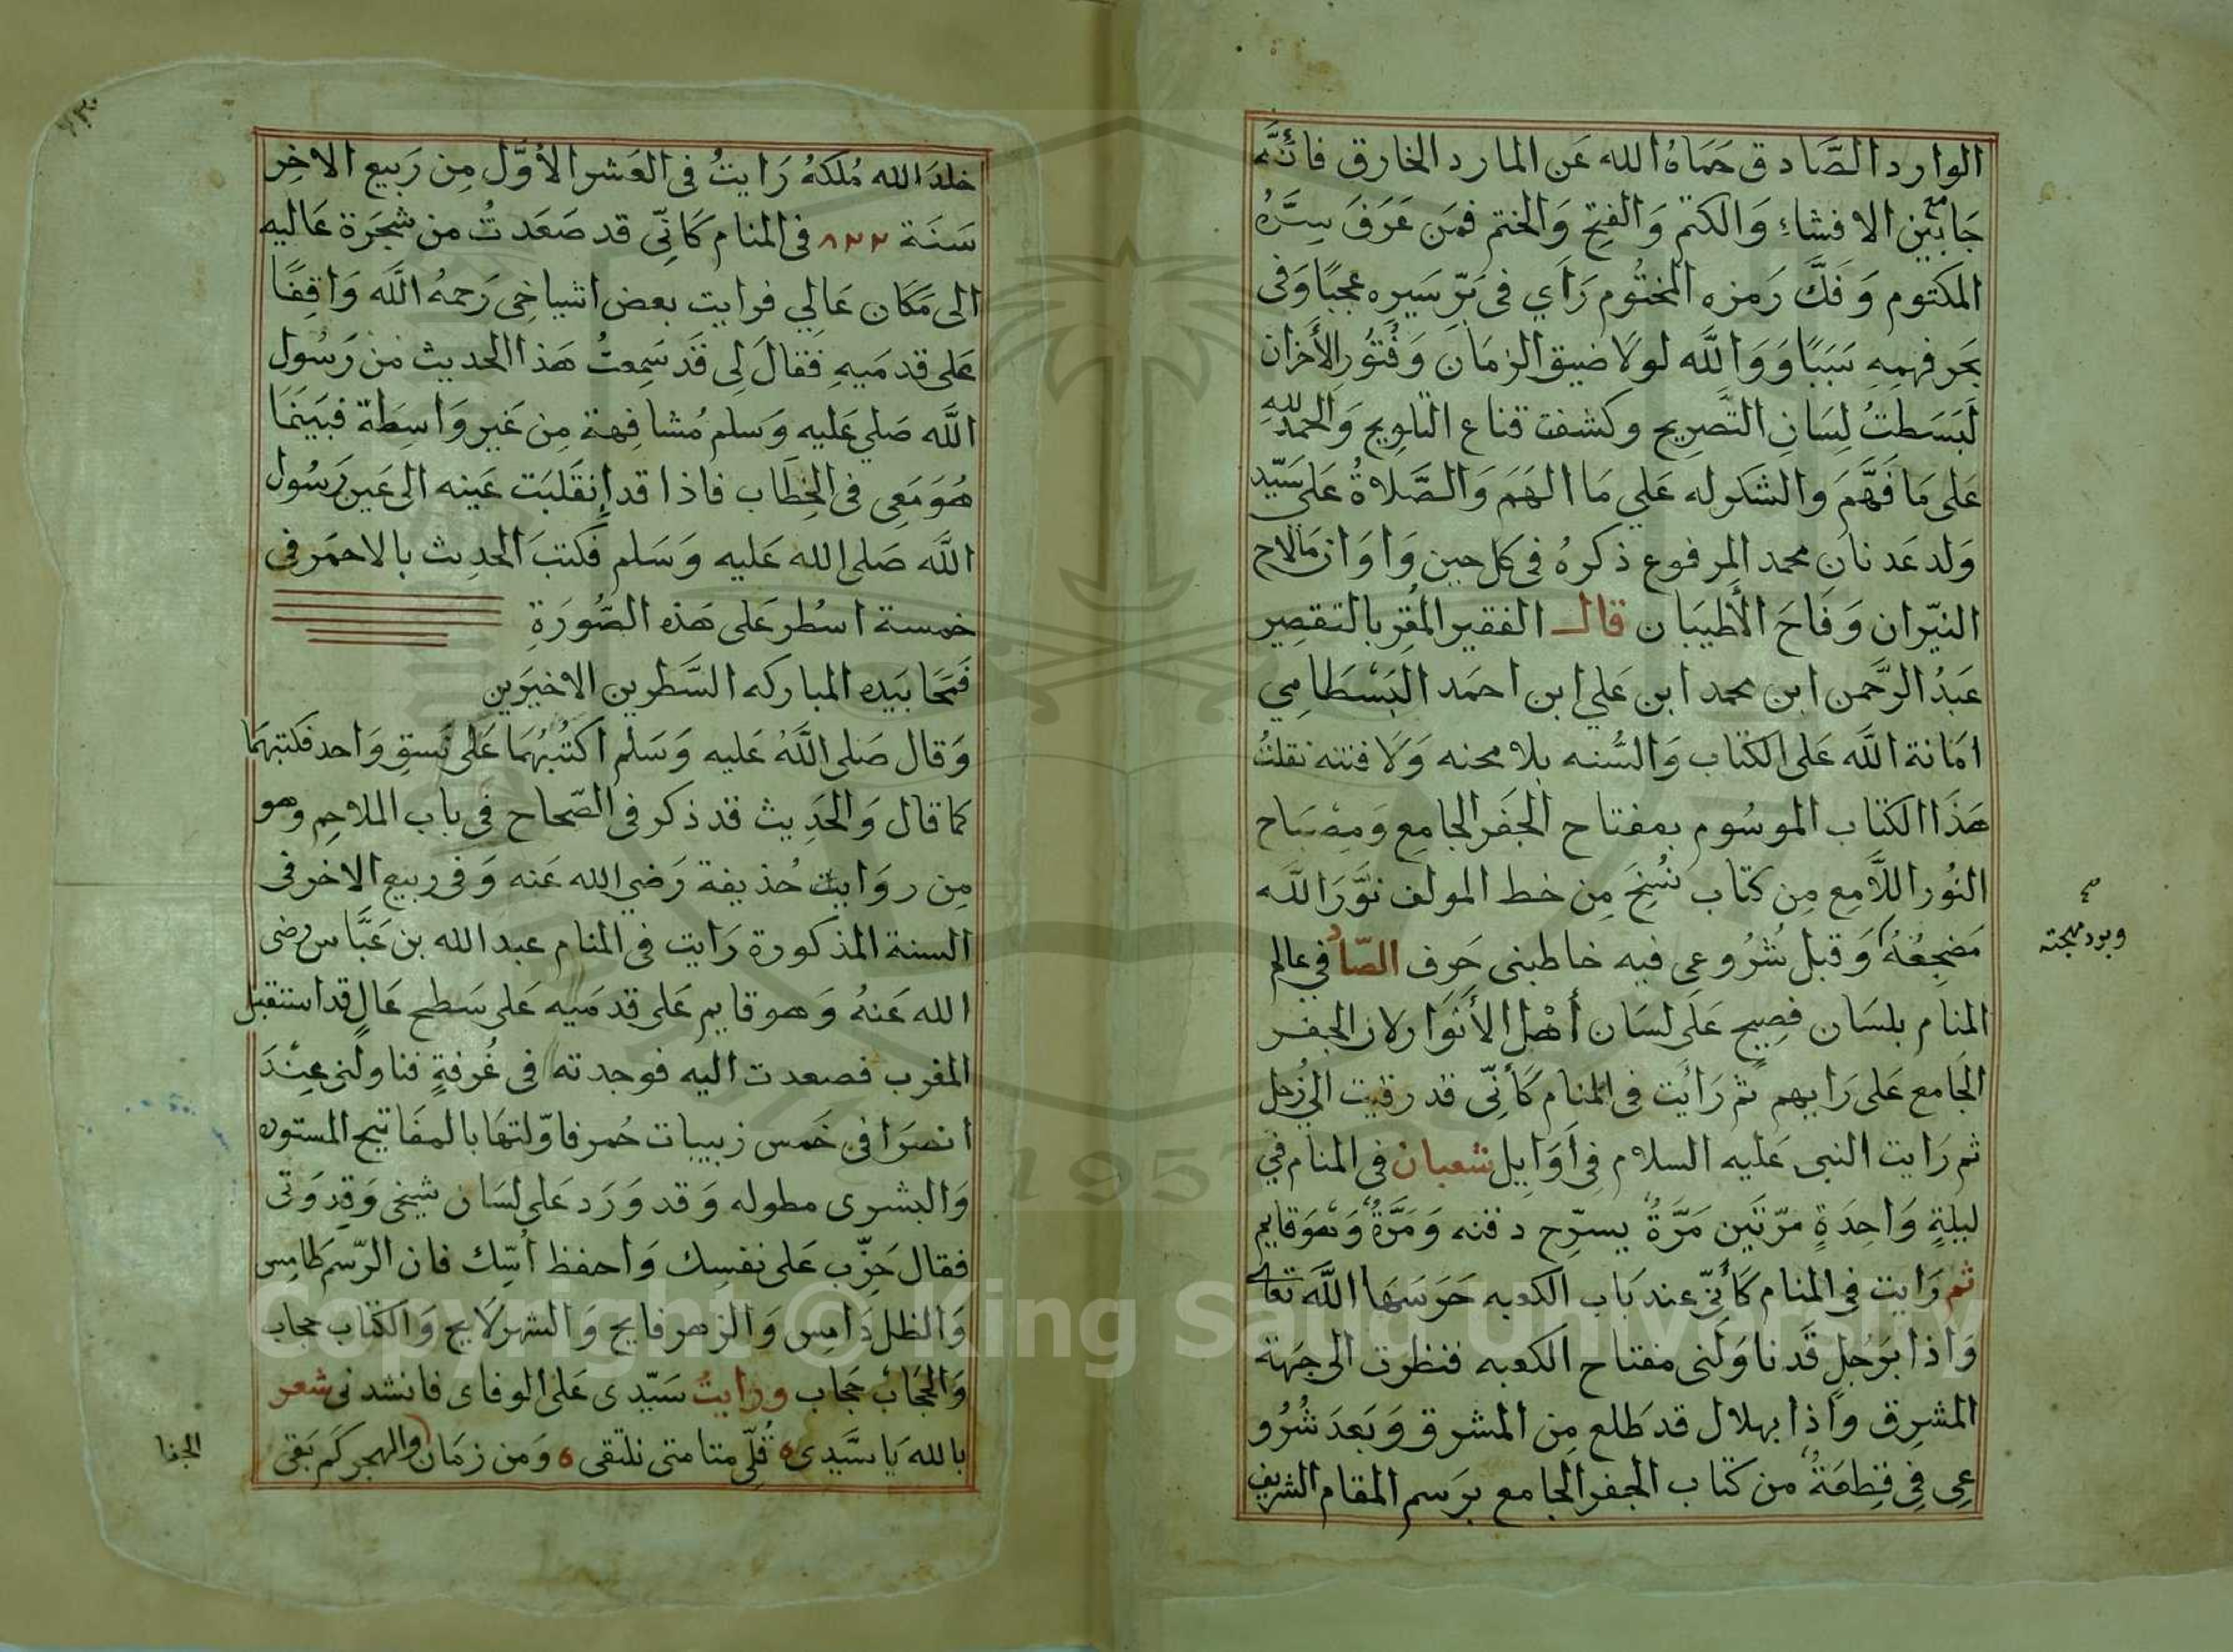 الوارد الصَّادق حَمَاهُ الله عَن المارد الخارق فانَّه
جَامع بَين الافشاءِ وَالكتم وَالفتح وَالختم فمَن عَرَفَ سِرَّهُ
المكتوم وَفَكَّ رَمزه المختُوم رَأي في بَرّ سَيره عجبًا وَفي
بَحر فهمِهِ سَبَبًا وَوَاللَّه لولَا ضيق الزمَان وَفُتُور الأخزان
لَبَسَطتُ لِسَانِ التَّصرِيح وكشفت قناع التلويح وَالحمدُ للهِ
عَلى مَا فَهَّمَ والشكر له عَلي مَا الهَمَ وَالصَّلاةُ عَلى سَيّد
وَلد عَدنان محمد المرفوع ذكرهُ في كل حين وَاوَان مَا لاح
النيّران وَفَاحَ الأطيَبان قال الفقير المُقِر بالتقصِير
عَبدُ الرَّحمن ابن محمد ابن عَلي ابن احمَد البَسْطَامِي
امَاتة اللَّه عَلى الكتاب وَالسُّنه بلا محنه وَلَا فتنه نقلتُ
هَذَا الكتاب الموسُوم بمفتاح الجَفر الجامِع وَمِصبَاح
النُور اللَّامِع مِن كتَاب نُسِخَ مِن خط المولف نَوَّرَ اللَّه
مَضجعُهُ وَقبل شُرُوعي فيه خاطبني حَرف الصّاد في عالم
المنام بلسَان فصِيح عَلى لسَان أهْل الأَنوَار لان الجفر
الجَامع عَلى رَايهم ثم رَائَت في المنام كَأنّي قد رقيت الي زُحل
ثم رَايت النبى عَليه السلام فِي أوَايل شعبان في المنام في
ليلةٍ وَاحِدَةٍ مرّتَين مَرَّةً يسرّح دقنه وَمَرَّةً وَهوَ قايم
ثم رَايت في المنام كَأنّي عند بَاب الكعبه حَرَسَهَا اللَّه تعالى
وَاذا برَجُلٍ قَد نَاوَلَنى مفتاح الكعبه فنظرت الى جهَة
المشرِق وَاذا بهلال قد طَلع مِن المشرق وَبَعدَ شُرُو
عي فِي قِطعَةً من كتاب الجفر الجامع برَسم المقام الشريف
صح
وبرد مهجته
خلدَ الله مُلكهُ رَايتُ في العَشر الأوَّل مِن رَبيع الاخِر
سَنَة ٨٢٢ في المنام كَانّي قد صَعَدتُ من شجَرَة عَاليه
الى مَكَان عَالِي فرايت بعض اشياخِي رَحمهُ اللَّه وَاقِفًا
عَلى قدمَيهِ فَقالَ لِى قَد سَمِعتُ هَذا الحديث مِن رَسُول
اللَّه صَلي عَليه وَسَلم مُشافِهة مِن غَير وَاسِطَة فبَينَمَا
هُوَ مَعِى في الخِطَاب فاذا قد إنقَلبَت عَينه الى عَين رَسُول
اللَّه صَلى الله عَليه وَسَلم فكتبَ الحديث بالاحمَر في
خمسة اسْطر عَلى هَذه الصُّورَةِ
فَمَحَا بيَده المباركه السَّطرين الاخيرَين
وَقال صَلى اللَّهُ عَليه وَسَلم اكتُبْهُمَا عَلى نَسقٍ وَاحد فكتبهَمَا
كمَا قال وَالحَدِيث قد ذكر في الصّحاح في باب الملاحِم وهو
مِن روَايت حُذيفة رَضي الله عَنه وَفي ربيع الاخر في
السنة المذكورة رَايت في المنام عبد الله بن عَبَّاس رضى
الله عَنهُ وَهو قايم عَلى قدمَيه عَلى سَطح عَالٍ قد استقبل
المغرب فصعدت اليه فوجدته في غُرفةٍ فناولنى عِنْدَ
انصرَافي خَمس زبيبات حُمر فاوّلتهَا بالمفَاتيح المستوره
وَالبشرى مطوله وَقد وَرَد عَلى لسَان شيخي وَقدوَتي
فقال حَزّب عَلى نفسِك وَاحفظ أسّك فان الرّسم طامِس
وَالظل دَامِس وَالزهر فايح وَالشهر لَايح وَالكتاب حجاب
وَالحجَاب حجَاب ورايتُ سَيّدى عَلى الوفاى فانشدنى شعر
بالله يَا سَّيدى قُلّى متا متى نلتقى ٥ وَمن زمَان والهجر كَم بَقى
الجفا
Copyright © King Saud University
1957